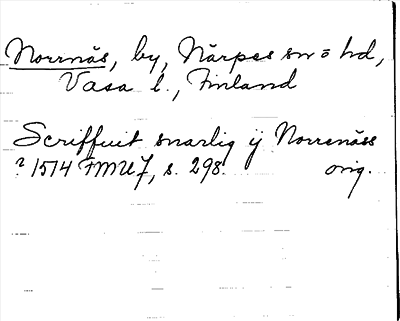 Norrnäs, by, Närpes sn o hd,
Vasa l., Finland
Scriffuit snarlig ij Norrenäss
? 1514 FMU 7, s. 298. orig.